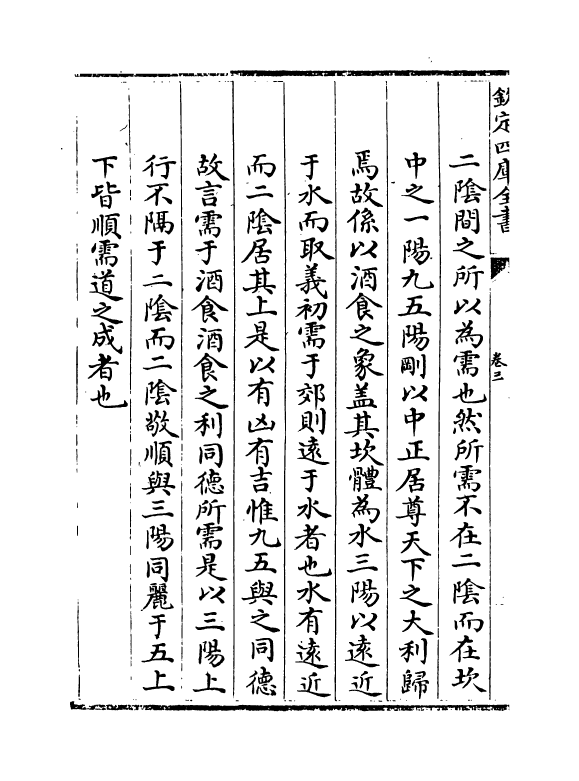 欽定四庫全書
卷三
二陰間之所以為需也然所需不在二陰而在坎
中之一陽九五陽剛以中正居尊天下之大利歸
焉故係以酒食之象盖其坎體為水三陽以遠近
于水而取義初需于郊則遠于水者也水有遠近
而二陰居其上是以有凶有吉惟九五與之同德
故言需于酒食酒食之利同德所需是以三陽上
行不隔于二陰而二陰敬順與三陽同麗于五上
下皆順需道之成者也